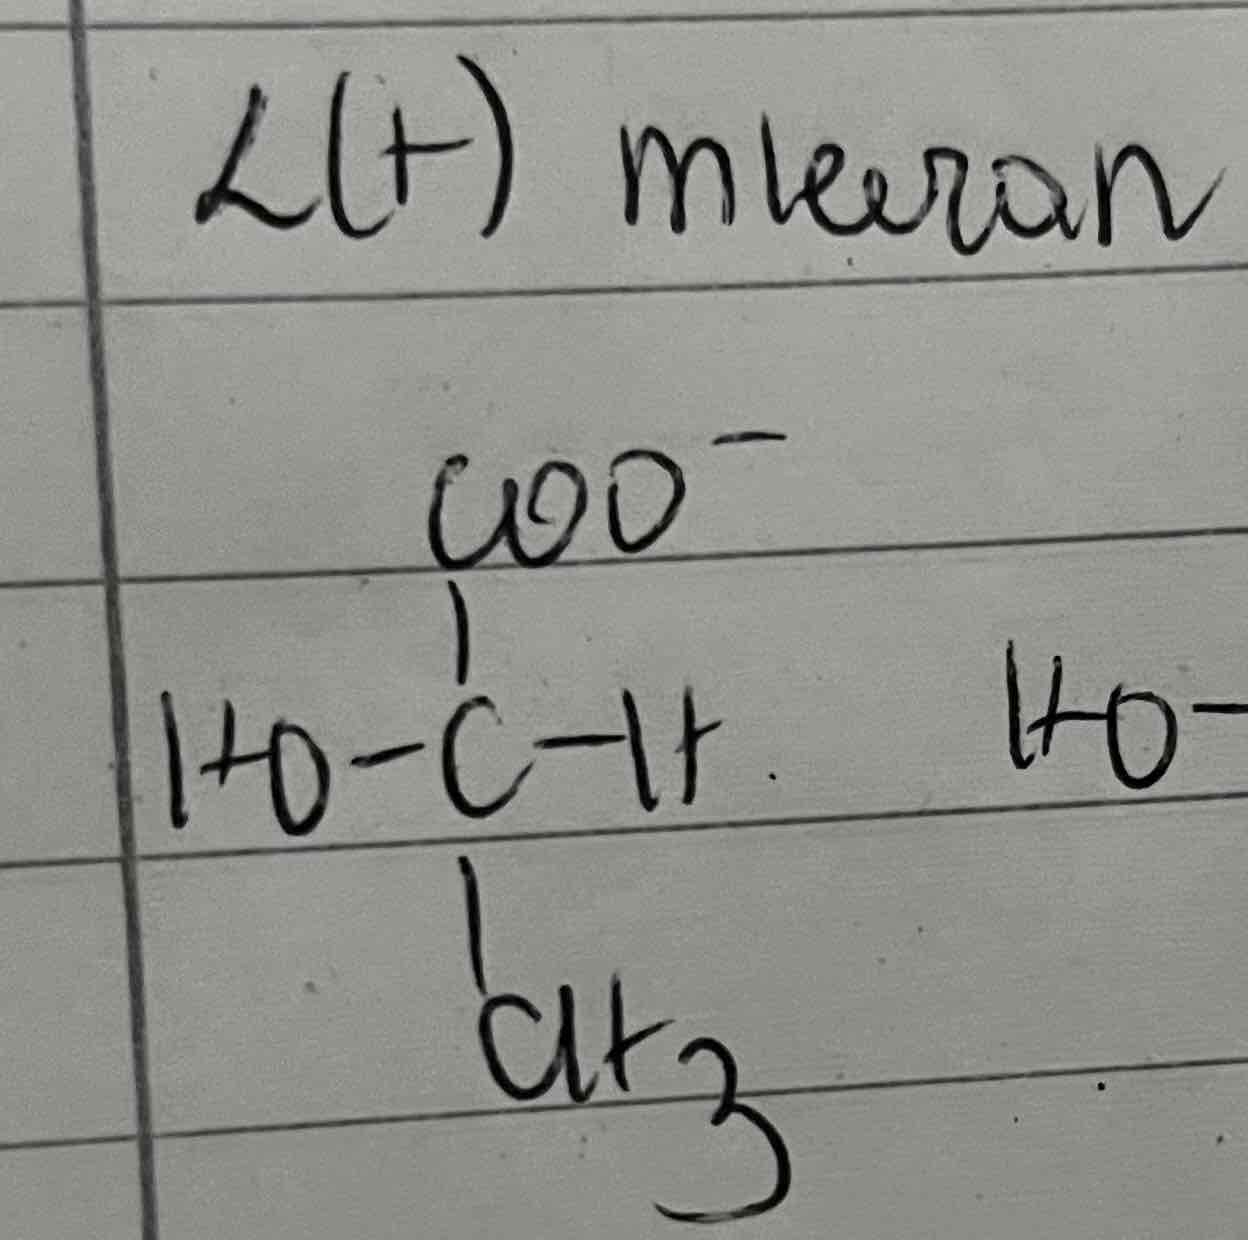 L(+) mleczan
COO⁻
|
HO-C-H HO-
|
CH3